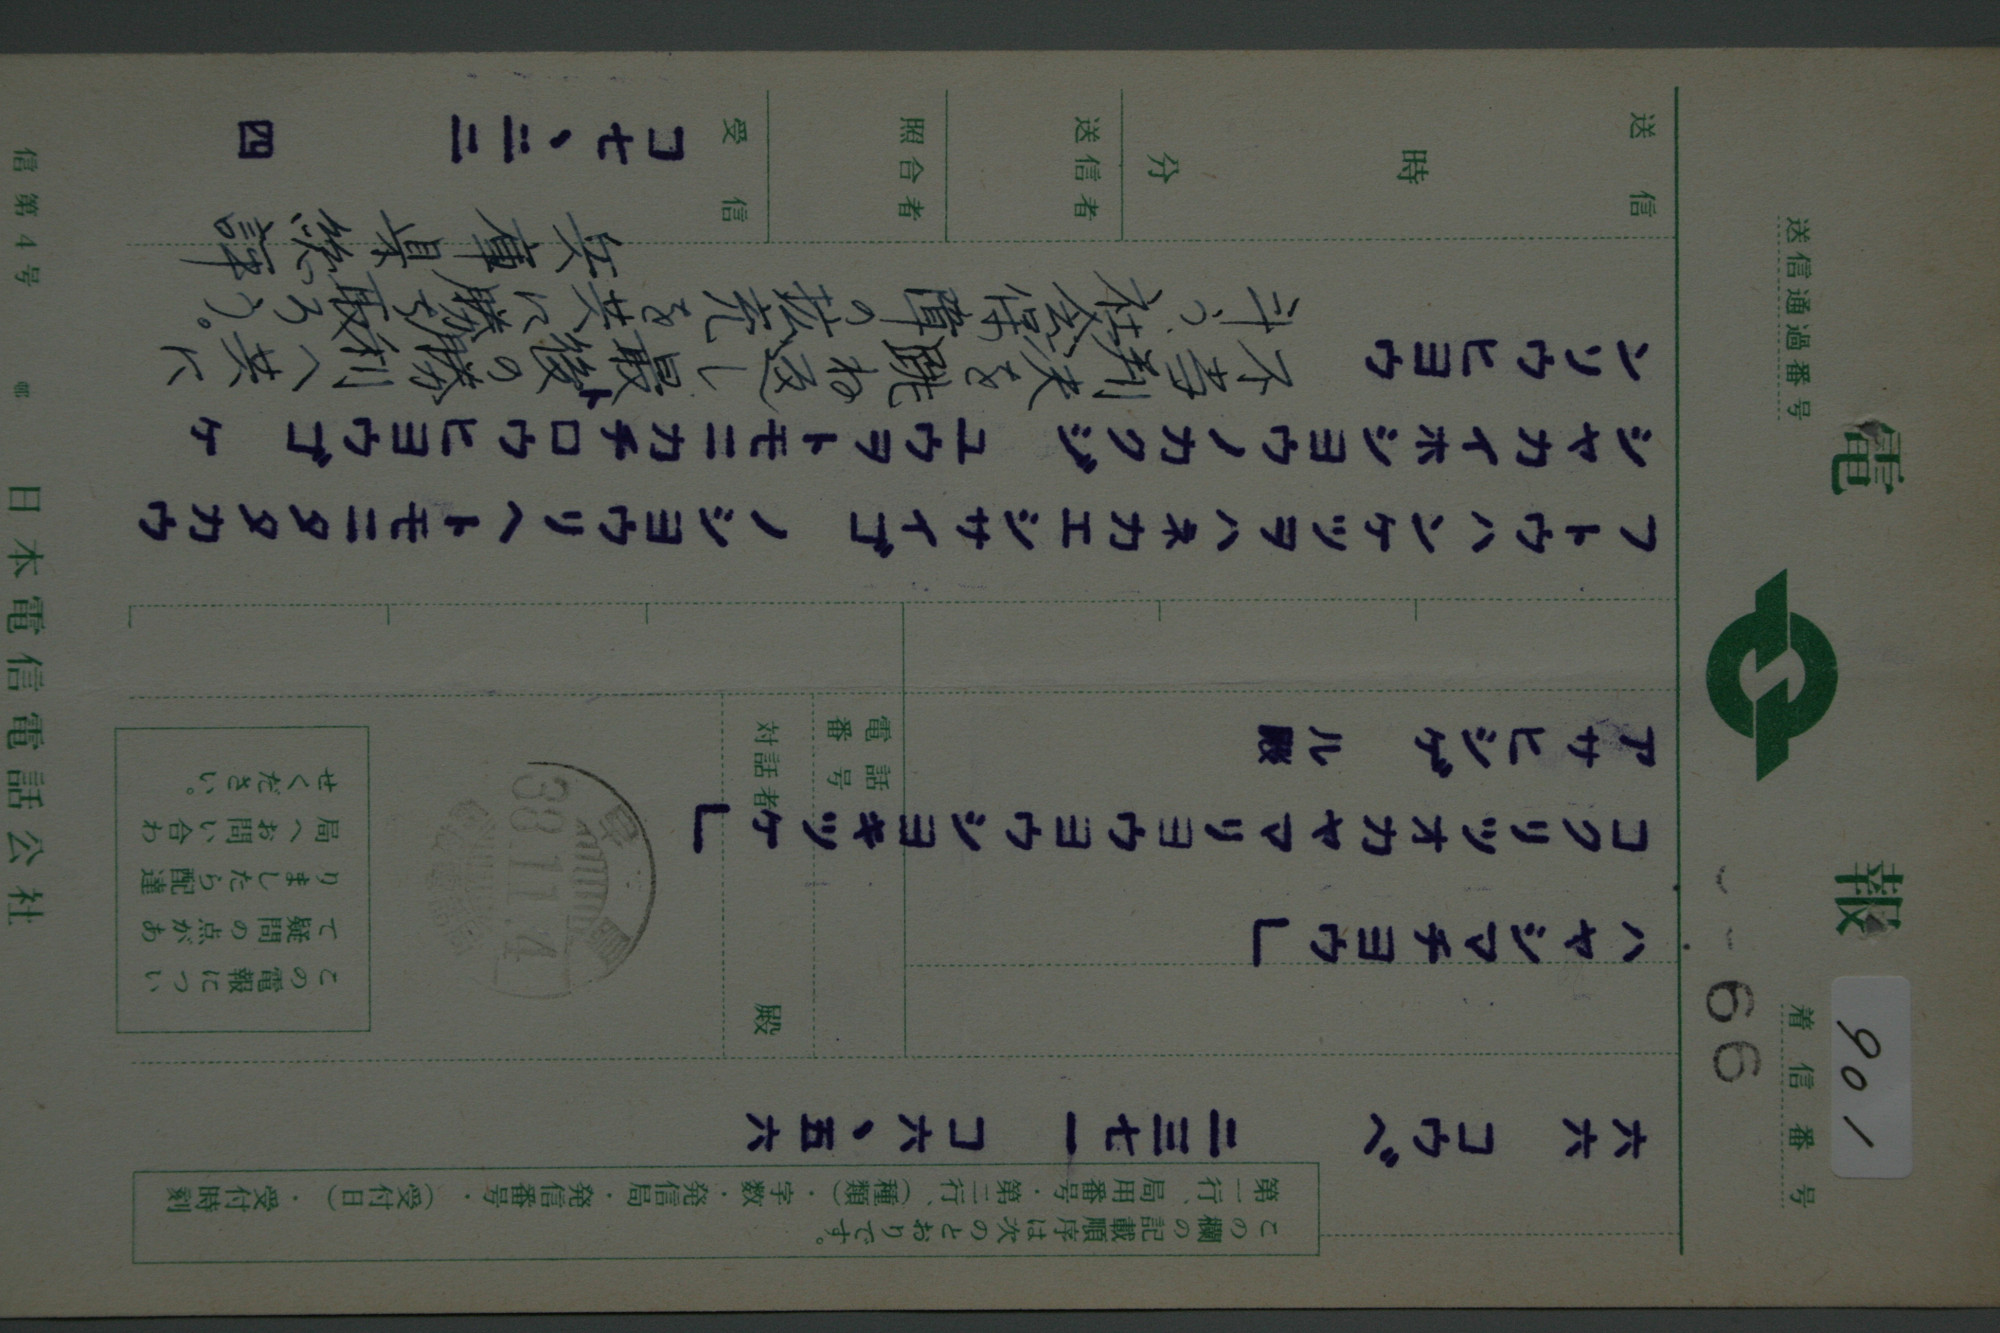 電報
着信番号
901
66
送信通過番号
この欄の記載順序は次のとおりです。
第一行、局用番号・第二行、(種類)・字数・発信局・発信番号・(受付日)・受付時刻
六六 コウベ 二三七一 コ六、五六
ハヤシマチヨウ」
コクリツオカヤマリヨウヨウシヨキツケ」
アサヒシゲル殿
電話番号
対話者 殿
38.11.4
この電報につい
て疑問の点があ
りましたら配達
局へお問い合わ
せください。
フトウハンケツヲハネカエシサイゴノシヨウリヘトモニタタカウ
シヤカイホシヨウノカクジユウヲトモニカチトロウヒヨウゴケ
ンソウヒヨウ
不当判決を跳ね返し最後の勝利へ共に
斗う、社会保障の拡充を共に勝ち取ろう。
兵庫県総評
送信
時 分
送信者
照合者
受信
コ七、二二 四
信第4号
日本電信電話公社